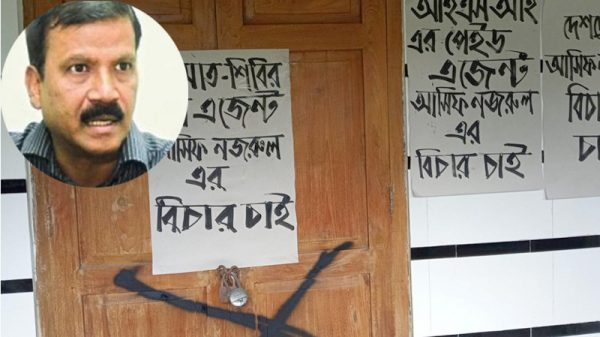 মাত-শিবির
এজেন্ট
আসিফ নজরুল
এর
বিচার চাই
আইএস আই
এর পেইড
এজেন্ট
আসিফ নজরুল
এর
বিচার চাই
আসিফ
বিচা
চা